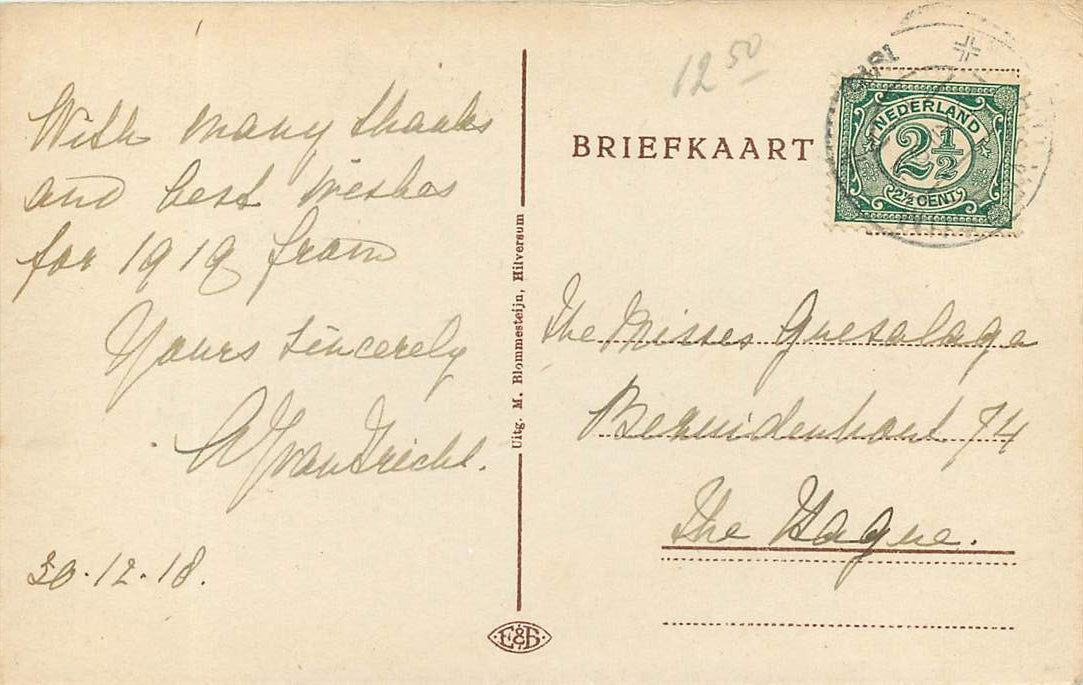 With many thanks
and best wishes
for 1919 from
Yours sincerely
30.12.18.
12 50
BRIEFKAART
NEDERLAND
2½
2½ CENT
Uitg. M. Blommesteijn, Hilversum
The Misses Guesalaga
Bezuidenhout 74
The Hague.
E&B